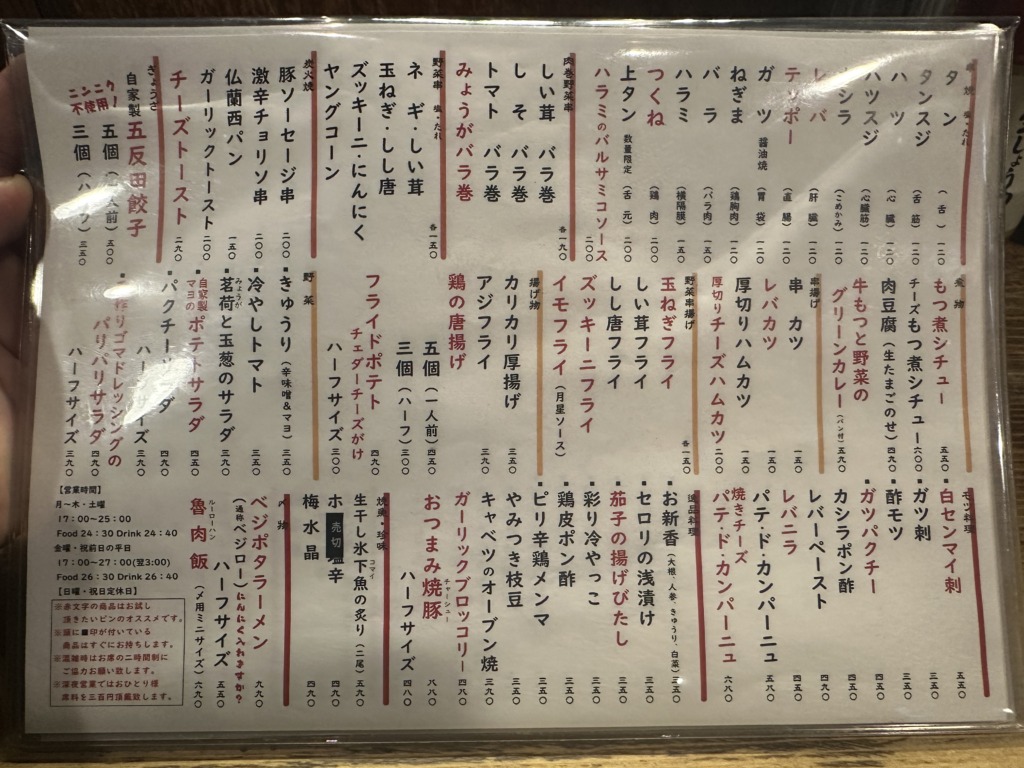 串焼 塩・たれ
タン （舌） 一二〇
タンスジ （舌筋） 一二〇
ハツ （心臓） 一二〇
ハツスジ （心臓筋） 一二〇
カシラ （こめかみ） 一二〇
レバ （肝臓） 一二〇
テッポー （直腸） 一二〇
ガツ 醤油焼 （胃袋） 一二〇
ねぎま （鶏胸肉） 一二〇
バラ （バラ肉） 一五〇
ハラミ （横隔膜） 一五〇
つくね （鶏肉） 一二〇
上タン 数量限定 （舌元） 二〇〇
ハラミのバルサミコソース 二〇〇
肉巻野菜串
しい茸 バラ巻
しそ バラ巻
トマト バラ巻
みょうがバラ巻
各一九〇
野菜串 塩・たれ
ネギ・しい茸
玉ねぎ・しし唐
ズッキーニ・にんにく
ヤングコーン
各一五〇
炭火焼
豚ソーセージ串 二〇〇
激辛チョリソ串 二〇〇
仏蘭西パン 一五〇
ガーリックトースト 二〇〇
チーズトースト 二九〇
ぎょうざ
自家製 五反田餃子
五個（一人前） 五〇〇
三個（ハーフ） 三五〇
ニンニク
不使用
もつ煮シチュー 五五〇
チーズもつ煮シチュー 六〇〇
肉豆腐（生たまごのせ） 四九〇
牛もつと野菜の
グリーンカレー（パン付） 五九〇
串揚げ
串カツ 一五〇
レバカツ 一五〇
厚切りハムカツ 一五〇
厚切りチーズハムカツ 二〇〇
野菜串揚げ
玉ねぎフライ
しい茸フライ
しし唐フライ
ズッキーニフライ
イモフライ（月星ソース）
各一五〇
揚げ物
カリカリ厚揚げ 三五〇
アジフライ 三九〇
鶏の唐揚げ
五個（一人前） 四五〇
三個（ハーフ） 三〇〇
フライドポテト
チェダーチーズがけ 四九〇
ハーフサイズ 三〇〇
野菜
▪きゅうり（辛味噌&マヨ） 三五〇
▪冷やしトマト 三五〇
▪茗荷と玉葱のサラダ 三九〇
みょうが
▪自家製マヨのポテトサラダ 四五〇
▪パクチーサラダ 四九〇
ハーフサイズ 三九〇
ゴマドレッシングの
パリパリサラダ 四九〇
ハーフサイズ 三九〇
モツ料理
▪白センマイ刺 五五〇
▪ガツ刺 五五〇
▪酢モツ 三五〇
▪ガツパクチー 四五〇
カシラポン酢 四五〇
レバーペースト 四九〇
レバニラ 四五〇
パテ・ド・カンパーニュ 五八〇
焼きチーズ
パテ・ド・カンパーニュ 六八〇
逸品料理
▪お新香（大根、人参、きゅうり、白菜） 三五〇
▪セロリの浅漬け 三五〇
▪茄子の揚げびたし 三五〇
▪彩り冷やっこ 三五〇
▪鶏皮ポン酢 三五〇
▪ピリ辛鶏メンマ 三五〇
やみつき枝豆 三五〇
キャベツのオーブン焼 三九〇
ガーリックブロッコリー 四八〇
おつまみ焼豚 八八〇
チャーシュー
ハーフサイズ 四八〇
炊魚・珍味
生干し氷下魚の炙り（二尾） 五九〇
コマイ
ホ 売切 塩辛 四九〇
梅水晶 四九〇
〆物
ベジポタラーメン 九九〇
（通称ベジロー）にんにく入れますか？
ハーフサイズ 五五〇
魯肉飯 （〆用ミニサイズ） 六九〇
ルーローハン
【営業時間】
月〜木・土曜
17:00〜25:00
Food 24:30 Drink 24:40
金曜・祝前日の平日
17:00〜27:00(翌3:00)
Food 26:30 Drink 26:40
【日曜・祝日定休日】
※赤文字の商品はお試し
頂きたいピンのオススメです。
※頭に■印が付いている
商品はすぐにお持ちします。
※混雑時はお席の二時間制に
ご協力お願い致します。
※深夜営業ではおひとり様
席料を三百円頂戴致します。